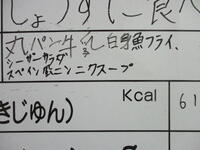 しょうずに食べ
丸パン牛乳白身魚フライ、
シーザーサラダ
スペイン風ニンニクスープ
Kcal
61
きじゅん)